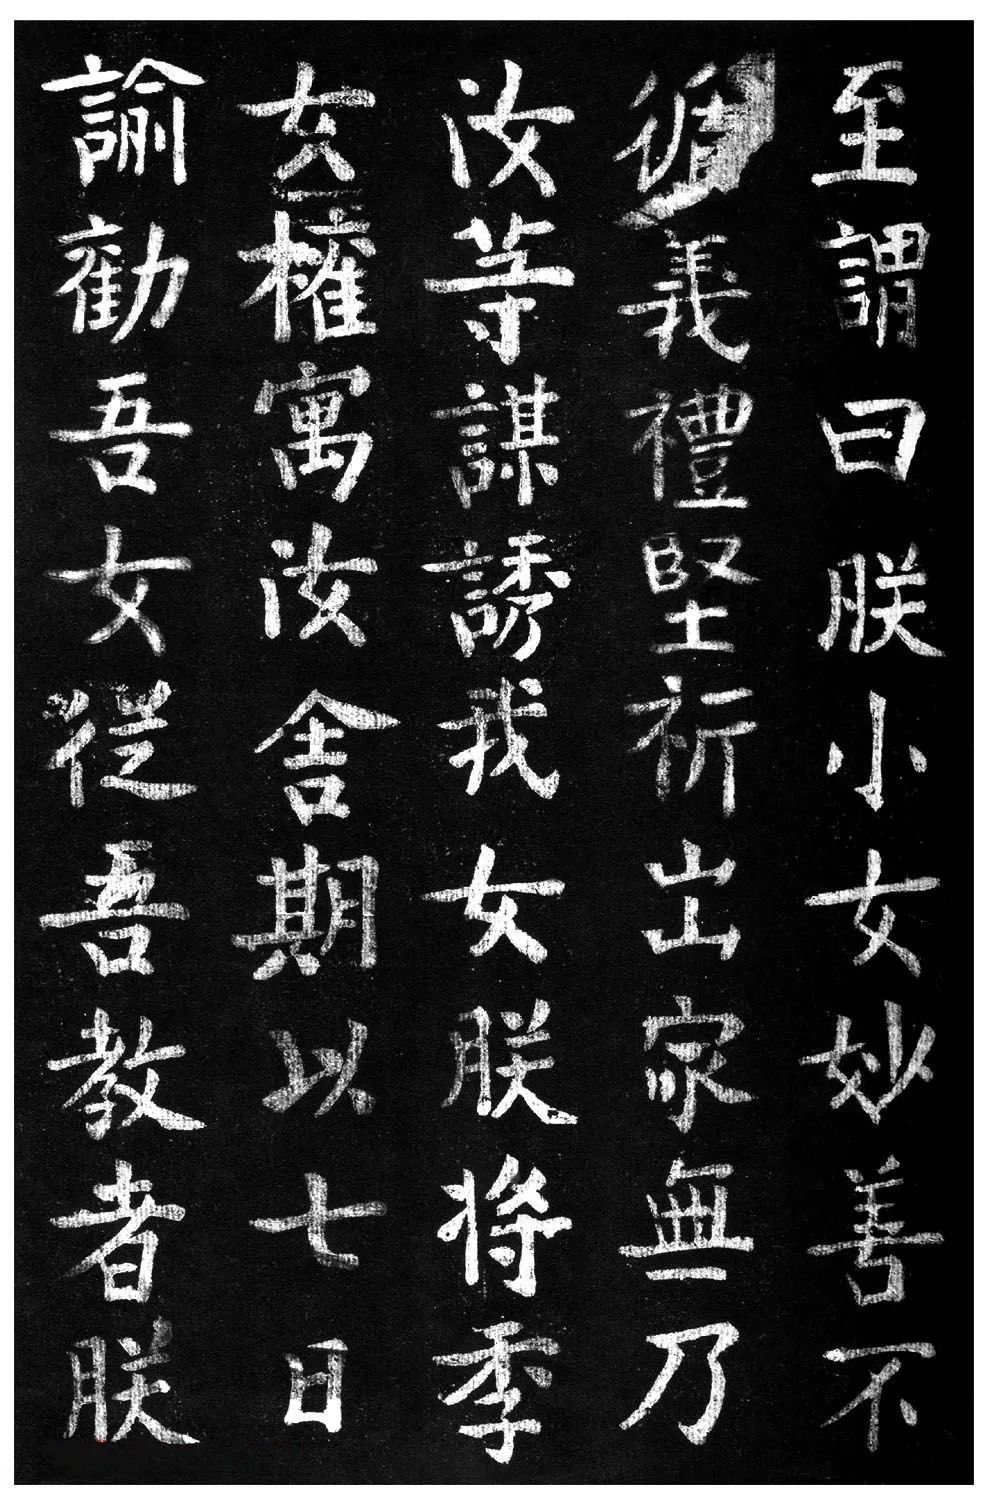 至謂曰朕小女妙善不
循義禮堅祈出家無乃
汝等謀誘我女朕將季
女權寓汝舍期以七日
諭勸吾女從吾教者朕